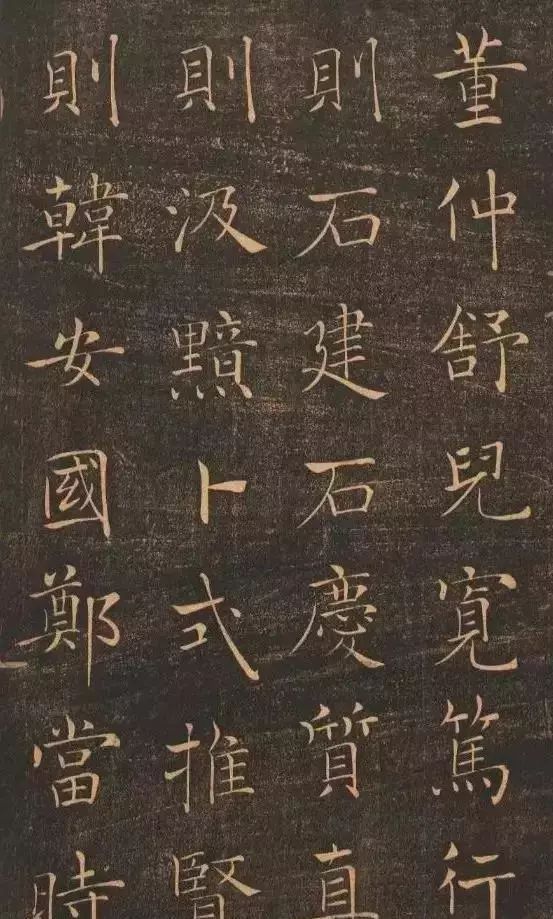 董仲舒兒寬篤行
則石建石慶質直
則汲黯卜式推賢
則韓安國鄭當時